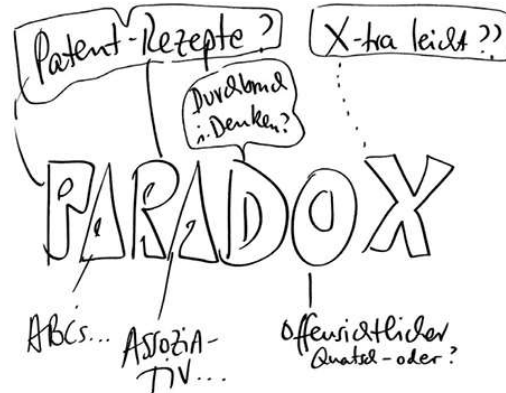 Patent-Rezepte?
X-tra leicht??
Durchbruch
i. Denken?
PARADOX
ABCs...
ASSOZIA-
TIV...
Offensichtlicher
Quatsch-oder?